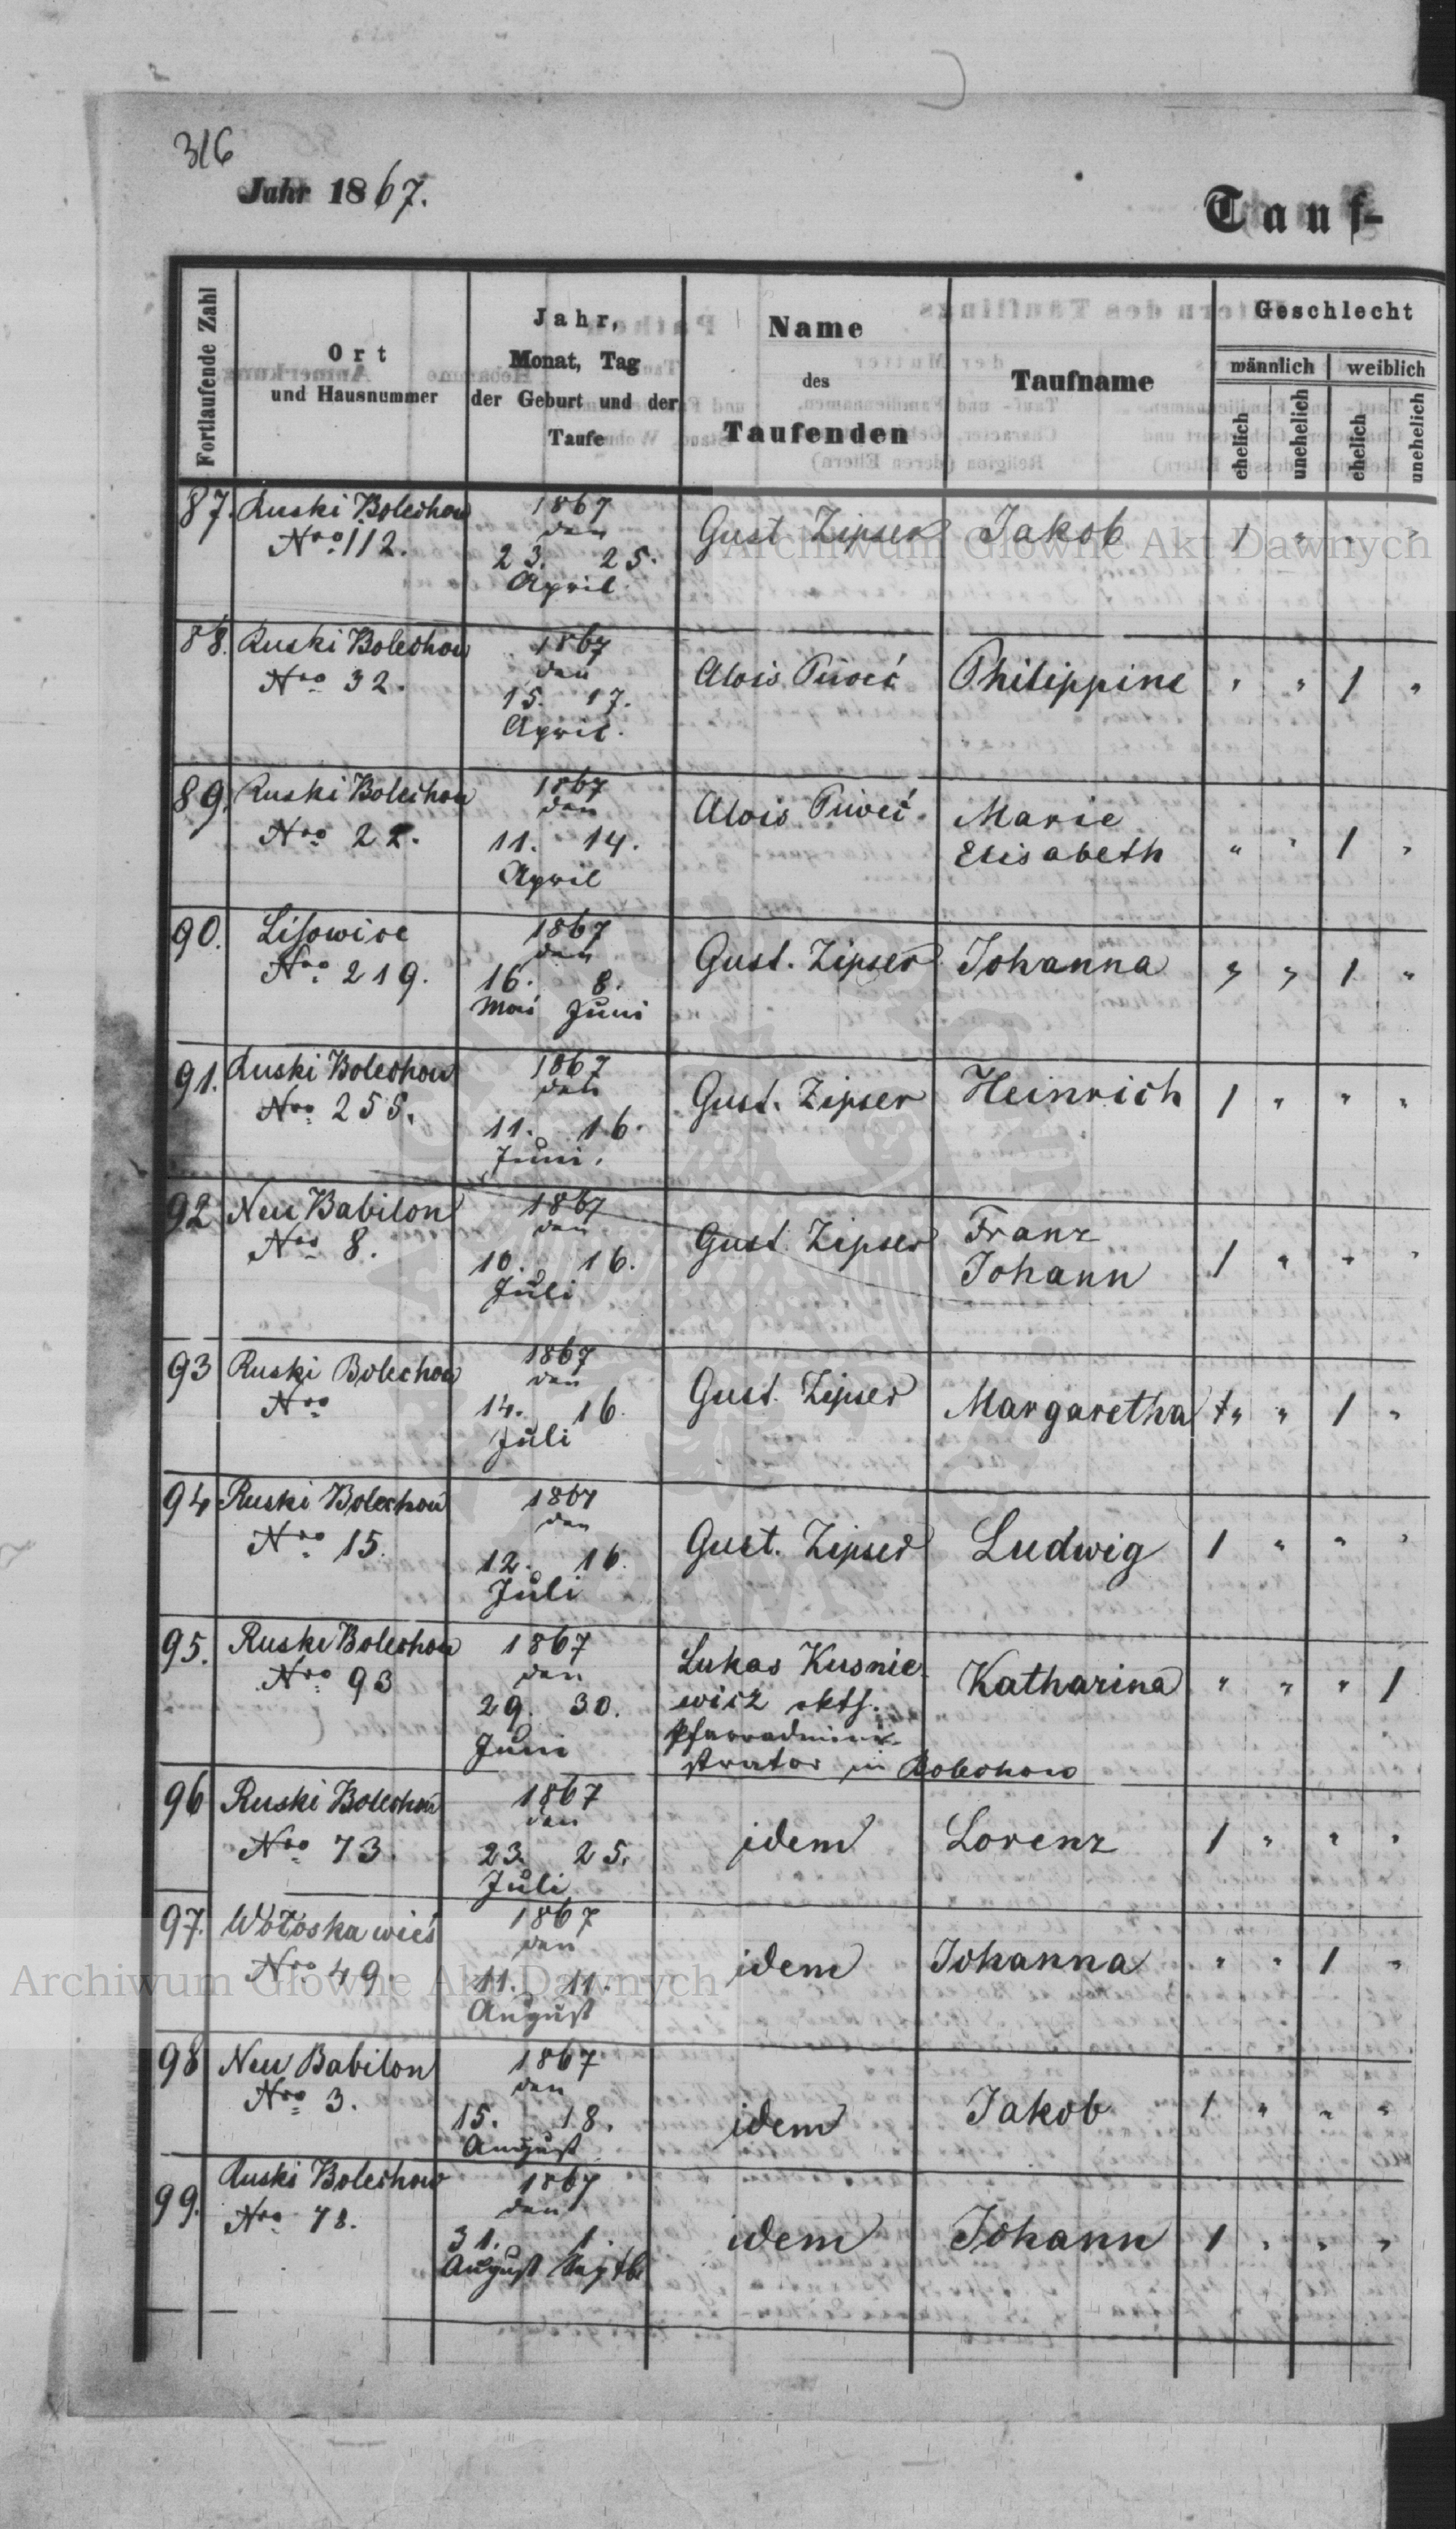 316
Jahr 1867.
Tauf-
Fortlaufende Zahl
Ort
und Hausnummer
Jahr,
Monat, Tag
der Geburt und der
Taufe
Name
des
Taufenden
Taufname
Geschlecht
männlich
weiblich
ehelich
unehelich
ehelich
unehelich
87. Ruski Bolechow 1867
Nro 112. den Gust Zipser Jakob 1 " " "
23. 25.
April
88. Ruski Bolechow 1867
Nro 32. den Alois Philippine " " 1 "
15. 17.
April.
89. Ruski Bolechow 1867
Nro 22. den Alois Marie
11. 14. Elisabeth " " 1 "
April
90. Lisowice 1867
Nro 219. den Gust. Zipser Johanna " " 1 "
16. 8.
Mai Juni
91. Ruski Bolechow 1867
Nro 255. den Gust. Zipser Heinrich 1 " " "
11. 16.
Juni.
92 Neu Babilon 1867
Nro 8. den Gust. Zipser Franz
10. 16. Johann 1 " " "
Juli
93 Ruski Bolechow 1867
Nro den Gust. Zipser Margaretha " " 1 "
14. 16.
Juli
94 Ruski Bolechow 1867
Nro 15. den Gust. Zipser Ludwig 1 " " "
12. 16.
Juli
95. Ruski Bolechow 1867 Lukas Kusnie-
Nro 93 den wicz Katharina " " " 1
29. 30. Pfarradmini-
Juni strator in Bolechow
96 Ruski Bolechow 1867
Nro 73. den idem Lorenz 1 " " "
23. 25.
Juli
97. Wołoska wieś 1867
Nro 49. den idem Johanna " " 1 "
11. 11.
August
98 Neu Babilon 1867
Nro 3. den idem Jakob 1 " " "
15. 18.
August
99. Ruski Bolechow 1867
Nro 78. den idem Johann 1 " " "
31. 1.
August Septb
Archiwum Główne Akt Dawnych
Archiwum Główne Akt Dawnych